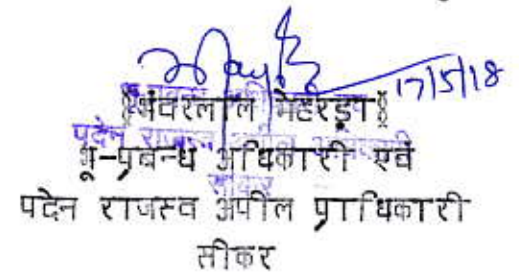 17/5/18
§भंवरलाल मेहरड़ा§
भू-प्रबन्ध अधिकारी एवं
पदेन राजस्व अपील प्राधिकारी
सीकर